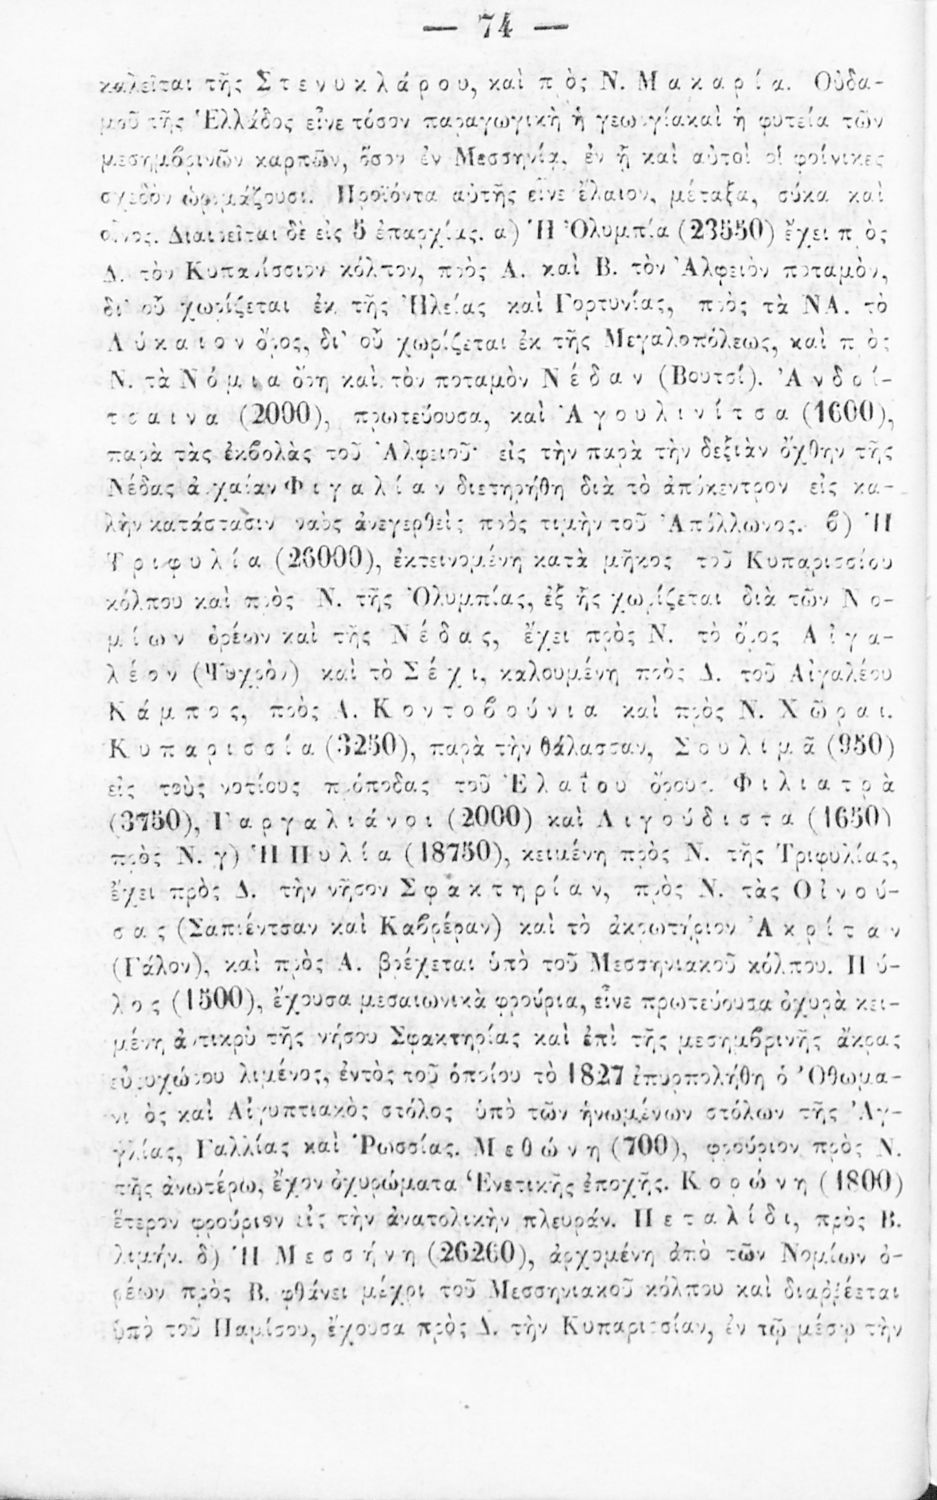 — 74 —
καλεῖται τῆς Στενυκλάρου, καὶ πρὸς Ν. Μακαρία. Οὐδα-
μοῦ τῆς Ἑλλάδος εἶνε τόσον παραγωγικὴ ἡ γεωργία καὶ ἡ φυτεία τῶν
μεσημβρινῶν καρπῶν, ὅσον ἐν Μεσσηνίᾳ, ἐν ᾗ καὶ αὐτοὶ οἱ φοίνικες
σχεδὸν ὡριμάζουσι. Προϊόντα αὐτῆς εἶνε ἔλαιον, μέταξα, σύκα καὶ
οἶνος. Διαιρεῖται δὲ εἰς 5 ἐπαρχίας. α) Ἡ Ὀλυμπία (23550) ἔχει πρὸς
Δ. τὸν Κυπαρίσσιον κόλπον, πρὸς Α. καὶ Β. τὸν Ἀλφειὸν ποταμὸν,
δι' οὗ χωρίζεται ἐκ τῆς Ἠλείας καὶ Γορτυνίας, πρὸς τὰ ΝΑ. τὸ
Λύκαιον ὄρος, δι' οὗ χωρίζεται ἐκ τῆς Μεγαλοπόλεως, καὶ πρὸς
Ν. τὰ Νόμια ὄρη καὶ τὸν ποταμὸν Νέδαν (Βουτσί). Ἀνδρί-
τσαινα (2000), πρωτεύουσα, καὶ Ἀγουλινίτσα (1600),
παρὰ τὰς ἐκβολὰς τοῦ Ἀλφειοῦ· εἰς τὴν παρὰ τὴν δεξιὰν ὄχθην τῆς
Νέδας ἀρχαίαν Φιγαλίαν διετηρήθη διὰ τὸ ἀπόκεντρον εἰς κα-
λὴν κατάστασιν ναὸς ἀνεγερθεὶς πρὸς τιμὴν τοῦ Ἀπόλλωνος. β) Ἡ
Τριφυλία (26000), ἐκτεινομένη κατὰ μῆκος τοῦ Κυπαρισσίου
κόλπου καὶ πρὸς Ν. τῆς Ὀλυμπίας, ἐξ ἧς χωρίζεται διὰ τῶν Νο-
μίων ὀρέων καὶ τῆς Νέδας, ἔχει πρὸς Ν. τὸ ὄρος Αἰγα-
λέον (Ψυχρὸν) καὶ τὸ Σέχι, καλουμένη πρὸς Δ. τοῦ Αἰγαλέου
Κάμπος, πρὸς Α. Κοντοβούνια καὶ πρὸς Ν. Χῶραι.
Κυπαρισσία (3250), παρὰ τὴν θάλασσαν, Σουλιμᾶ (950)
εἰς τοὺς νοτίους πρόποδας τοῦ Ἐλαΐου ὄρους. Φιλιατρὰ
(3750), Γαργαλιάνοι (2000) καὶ Λιγούδιστα (1650)
πρὸς Ν. γ) Ἡ Πυλία (18750), κειμένη πρὸς Ν. τῆς Τριφυλίας,
ἔχει πρὸς Δ. τὴν νῆσον Σφακτηρίαν, πρὸς Ν. τὰς Οἰνού-
σας (Σαπιέντσαν καὶ Καβρέραν) καὶ τὸ ἀκρωτήριον Ἀκρίταν
(Γάλον), καὶ πρὸς Α. βρέχεται ὑπὸ τοῦ Μεσσηνιακοῦ κόλπου. Πύ-
λος (1500), ἔχουσα μεσαιωνικὰ φρούρια, εἶνε πρωτεύουσα ὀχυρὰ κει-
μένη ἀντικρὺ τῆς νήσου Σφακτηρίας καὶ ἐπὶ τῆς μεσημβρινῆς ἄκρας
εὐρυχώρου λιμένος, ἐντὸς τοῦ ὁποίου τὸ 1827 ἐπυρπολήθη ὁ Ὀθωμα-
νικὸς καὶ Αἰγυπτιακὸς στόλος ὑπὸ τῶν ἡνωμένων στόλων τῆς Ἀγ-
γλίας, Γαλλίας καὶ Ῥωσσίας. Μεθώνη (700), φρούριον πρὸς Ν.
τῆς ἀνωτέρω, ἔχον ὀχυρώματα Ἑνετικῆς ἐποχῆς. Κορώνη (1800)
ἕτερον φρούριον εἰς τὴν ἀνατολικὴν πλευράν. Πεταλίδι, πρὸς Β.
λιμήν. δ) Ἡ Μεσσήνη (26260), ἀρχομένη ἀπὸ τῶν Νομίων ὀ-
ρέων πρὸς Β. φθάνει μέχρι τοῦ Μεσσηνιακοῦ κόλπου καὶ διαῤῥέεται
ὑπὸ τοῦ Παμίσου, ἔχουσα πρὸς Δ. τὴν Κυπαρισσίαν, ἐν τῷ μέσῳ τὴν